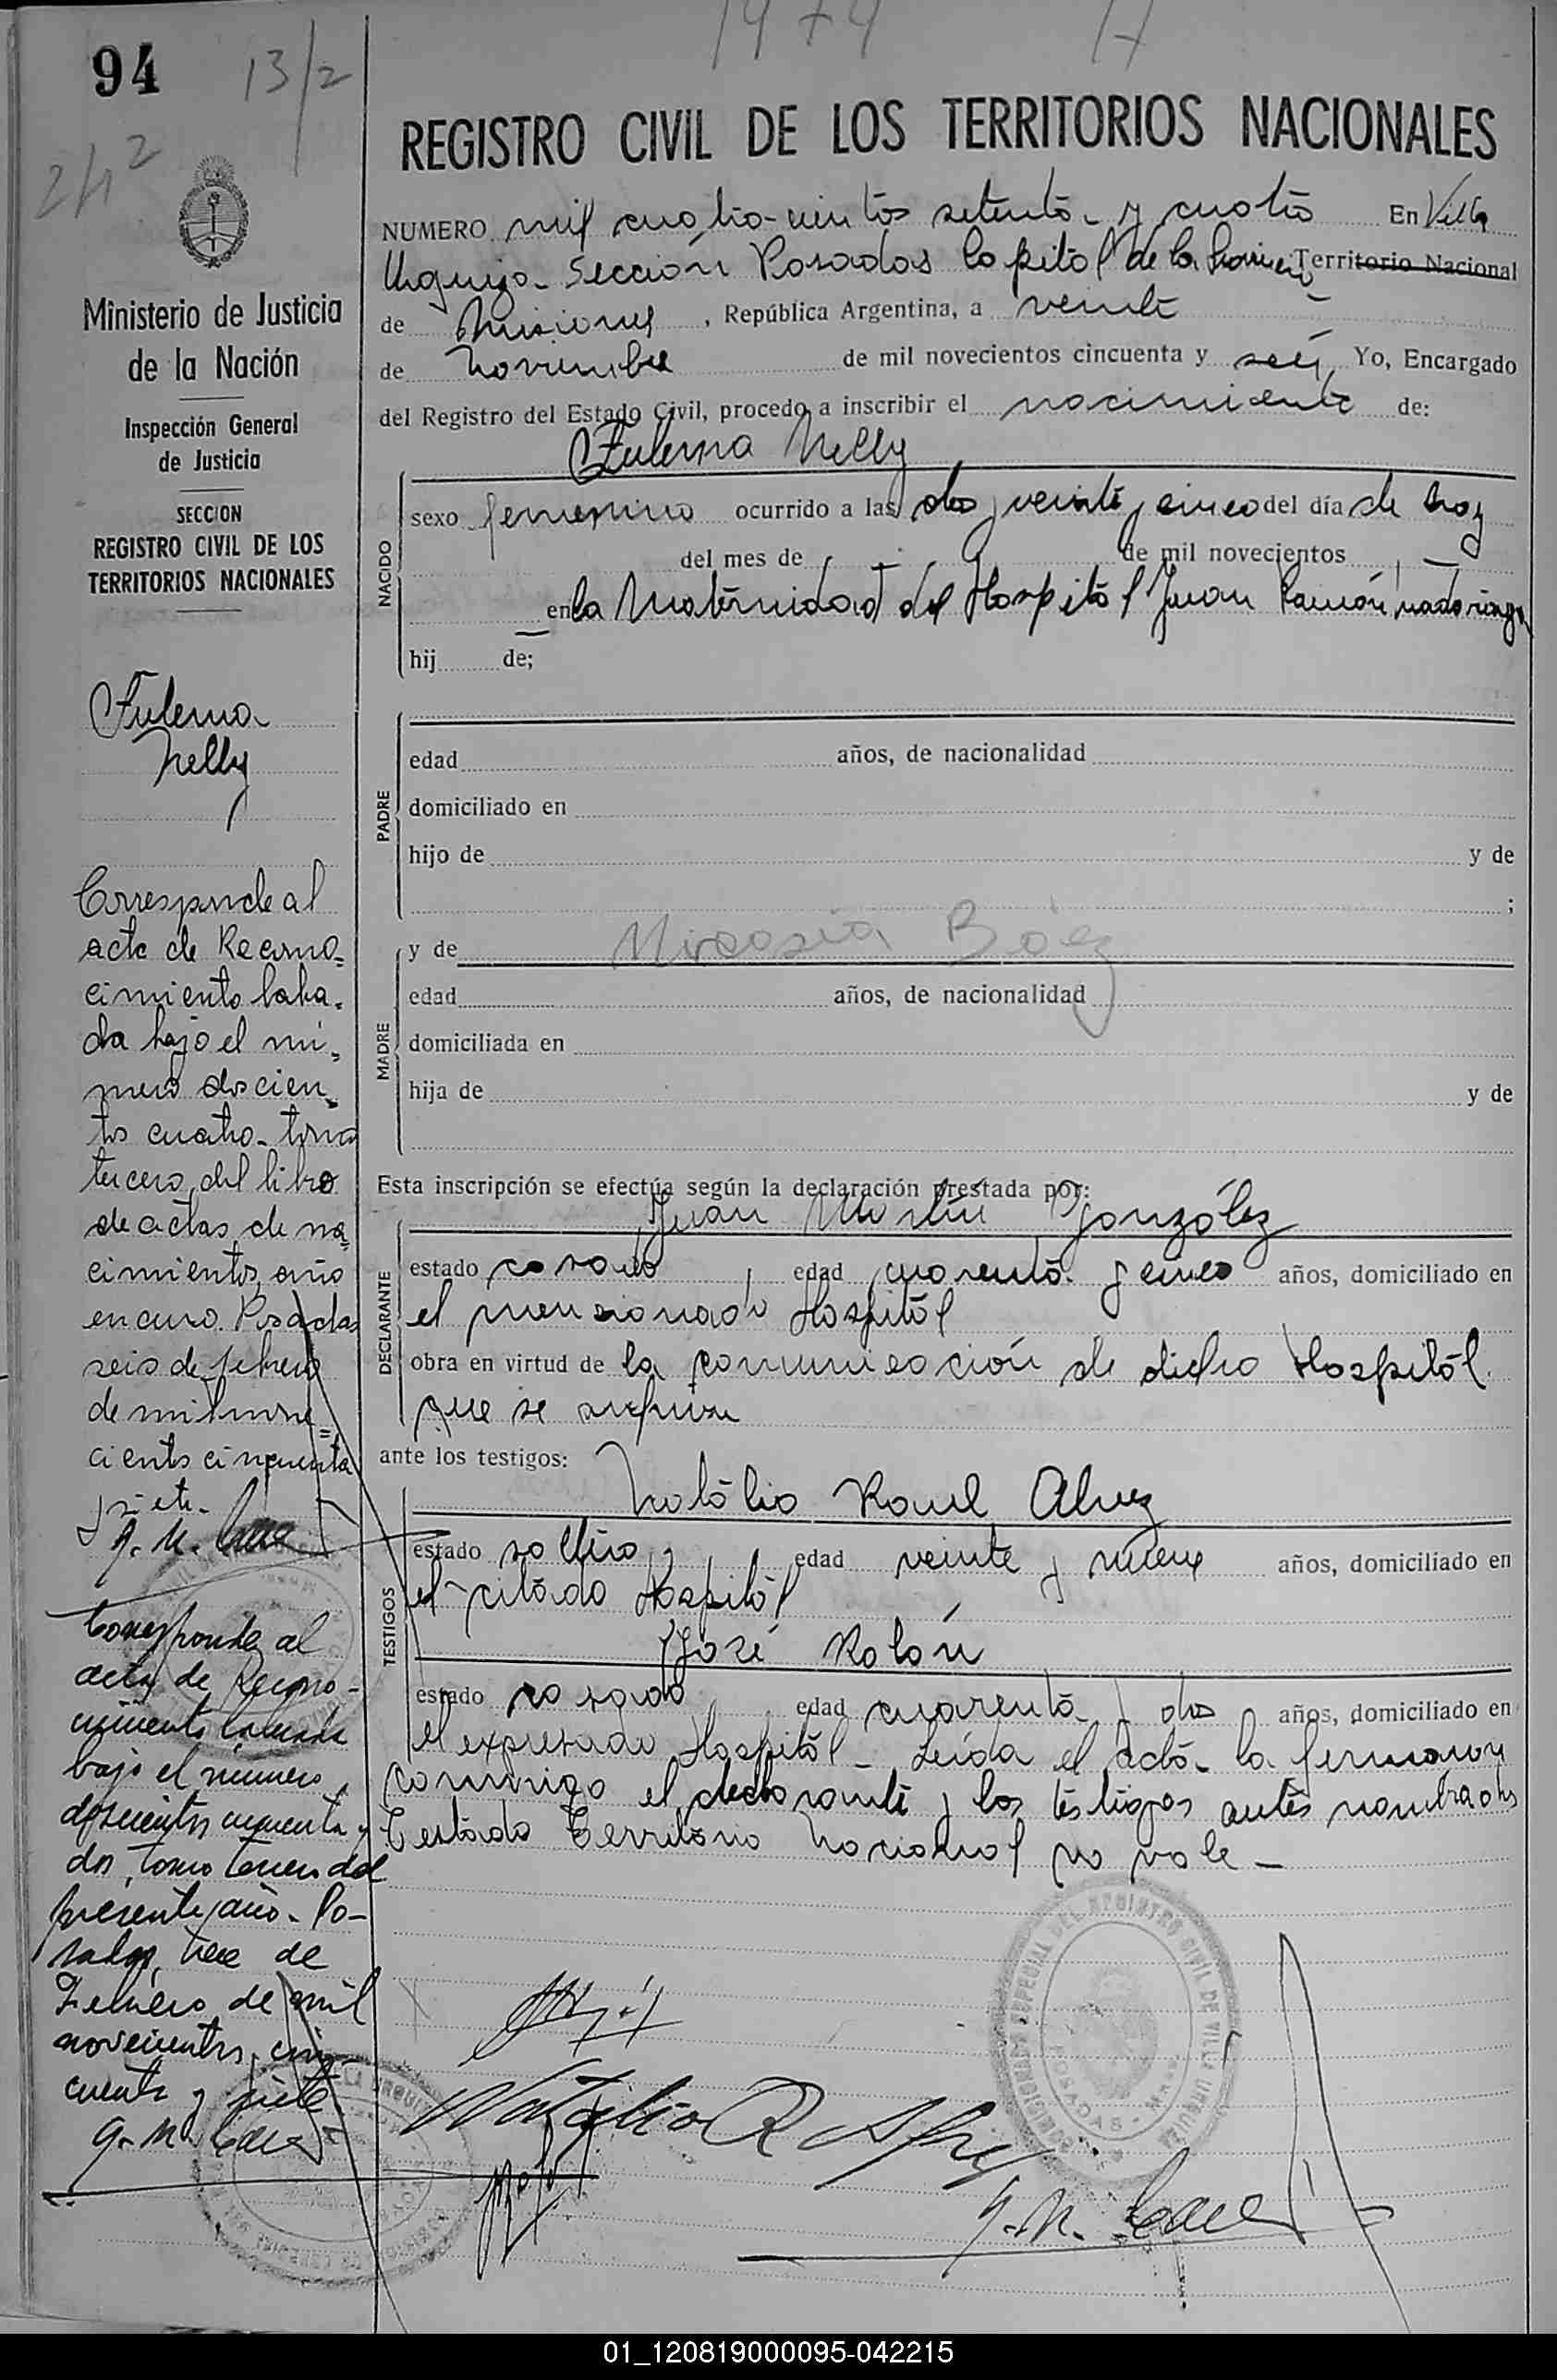 94
13/2
1474
17
REGISTRO CIVIL DE LOS TERRITORIOS NACIONALES
NUMERO mil cuatro-cientos setenta y cuatro En Villa
Urquiza Sección Posadas Capital de la Territorio Nacional
de Misiones , República Argentina, a veinte
de noviembre de mil novecientos cincuenta y seis Yo, Encargado
del Registro del Estado Civil, procedo a inscribir el nacimiento de:
Zulema Nelly
NACIDO
sexo femenino ocurrido a las dos y veinte y cinco del día de hoy
del mes de de mil novecientos
en la Maternidad del Hospital Juan Ramón Madariaga
hij de;
PADRE
edad años, de nacionalidad
domiciliado en
hijo de y de
;
MADRE
y de Nicasia Báez
edad años, de nacionalidad
domiciliada en
hija de y de
Esta inscripción se efectúa según la declaración prestada por:
Juan Martín González
DECLARANTE
estado casado, edad cuarenta y cinco años, domiciliado en
el mencionado Hospital
obra en virtud de la comunicación de dicho Hospital
que se archiva
ante los testigos:
Natalio Raul Alvez
TESTIGOS
estado soltero, edad veinte y nueve años, domiciliado en
el citado Hospital
José Rolón
estado casado, edad cuarenta y dos años, domiciliado en
el expresado Hospital - Leída el acta la firmaron
conmigo el declarante y los testigos antes nombrados
Testado Territorio Nacional no vale -
Natalio R Alvez
Ministerio de Justicia
de la Nación
Inspección General
de Justicia
SECCION
REGISTRO CIVIL DE LOS
TERRITORIOS NACIONALES
Zulema
Nelly
Corresponde al
acta de Recono=
cimiento labra=
da bajo el nú=
mero doscien=
tos cuatro - tomo
tercero del libro
de actas de na=
cimientos año
en curso. Posadas
seis de febrero
de mil nove=
cientos cincuenta
y siete.
Corresponde al
acta de Recono-
cimiento labrada
bajo el número
doscientos cincuenta y
dos, tomo tercero del
presente año - Po-
sadas, trece de
Febrero de mil
novecientos cin-
cuenta y siete.
01_120819000095-042215